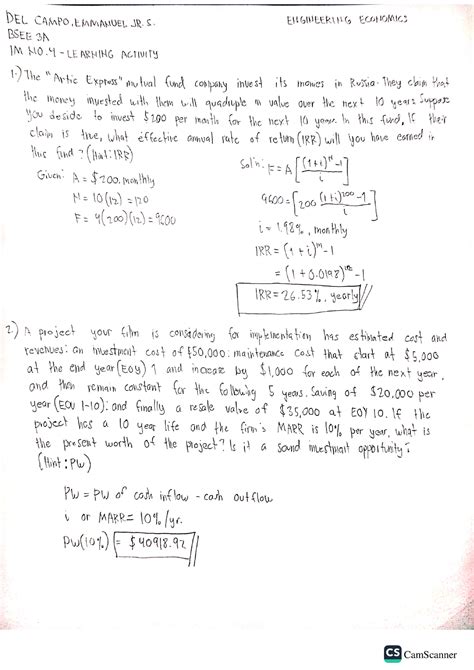 DEL CAMPO, EMMANUEL JR. S. ENGINEERING ECONOMICS
BSEE 3A
IM NO. 4 - LEARNING ACTIVITY
1.) The "Artic Express" mutual fund company invest its monies in Russia. They claim that
the money invested with them will quadruple in value over the next 10 years. Suppose
you deside to invest $200 per month for the next 10 years in this fund. If their
claim is true, what effective annual rate of return (IRR) will you have earned in
this fund? (Hint: IRR)
Given: A = $200. monthly
N = 10(12) = 120
F = 4(200)(12) = 9600
Sol'n: F = A [ (1+i)^N - 1 / i ]
9600 = [ 200 (1+i)^200 - 1 / i ]
i = 1.98%, monthly
IRR = (1 + i)^m - 1
= (1 + 0.0198)^12 - 1
IRR = 26.53%, yearly
2.) A project your film is considering for implementation has estimated cost and
revenues: an investment cost of $50,000: maintenance cost that start at $5,000
at the end year (EOY) 1 and increase by $1,000 for each of the next year,
and then remain constant for the following 5 years. Saving of $20,000 per
year (EOY 1-10): and finally a resale value of $35,000 at EOY 10. If the
project has a 10 year life and the firm's MARR is 10% per year, what is
the present worth of the project? Is it a sound investment opportunity?
(Hint: PW)
PW = PW of cash inflow - cash outflow
i or MARR = 10%/yr.
PW(10%) = $40918.92
CS CamScanner